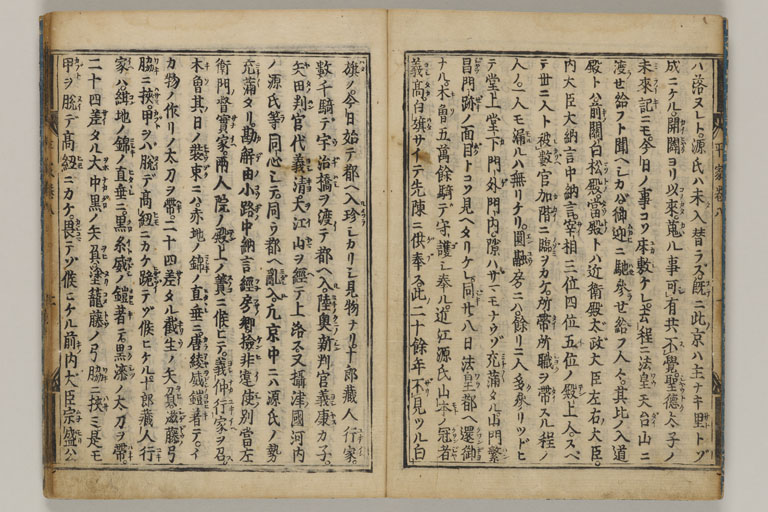 ハ落ヌレト。源氏ハ未入替ラス。既ニ此京ハ主ナキ里トゾ
成ニケル。開闢ヨリ以來蒐ル事可有共、不覺聖德太子ノ
未來記ニモ。今日ノ事コソ床敷ケレ。去程ニ法皇天台山ニ
渡セ給フト聞ヘシカハ。御迎ニ馳參セ給フ人々。其比ノ入道
殿トハ前關白松殿。當殿トハ近衛殿。太政大臣左右大臣。
内大臣大納言中納言。宰相三位四位五位ノ殿上人。スヘ
テ世ニ人ト被數官加階ニ臨ヲカケ。所帶所職ヲ帶スル程ノ
人ノ一人モ漏ルハ無リケリ。圓融房ニハ餘リニ人多參リツドヒ
テ堂上堂下門外門内隙ハサマモナウゾ充滿タル山門繁
昌門跡ノ面目トコソ見ヘタリケレ。同廿八日法皇都ヘ還御
ナル。木曾五萬餘騎ニテ守護シ奉ル。近江源氏山本ノ冠者
義高。白旗サイテ先陳ニ供奉ス。此二十餘年不見ツル白
旗ノ。今日始テ都ヘ入。珍シカリシ見物ナリ。十郎藏人行家。
數千騎ニテ宇治橋ヲ渡テ都ヘ入。陸奧新判官義康カ子。
矢田判官代義清大江山ヲ經テ上洛ス。又攝津國河内
ノ源氏等同心シテ。同ウ都ヘ亂入。凡京中ニハ源氏ノ勢
充滿タリ。勘解由小路中納言經房卿。檢非違使別當左
衛門督實家。兩人院ノ殿上ノ簀ニ候ヒテ。義仲行家ヲ召。
木曾其日ノ裝束ニハ。赤地ノ錦ノ直垂ニ。唐綾威鎧着テ。イ
カ物ノ作リノ太刀ヲ帶。二十四差タル截生ノ矢負。滋藤弓
脇ニ挾。甲ヲハ脱テ高紐ニカケ。跪テゾ候ヒケル。十郎藏人行
家ハ。紺地ノ錦ノ直垂ニ。黒糸威ノ鎧着テ。黒漆ノ太刀ヲ帶。
二十四差タル大中黒ノ矢負。塗籠藤ノ弓脇ニ挾ミ。是モ
甲ヲ脱テ高紐ニカケ。畏テゾ候ヒケル。前内大臣宗盛公